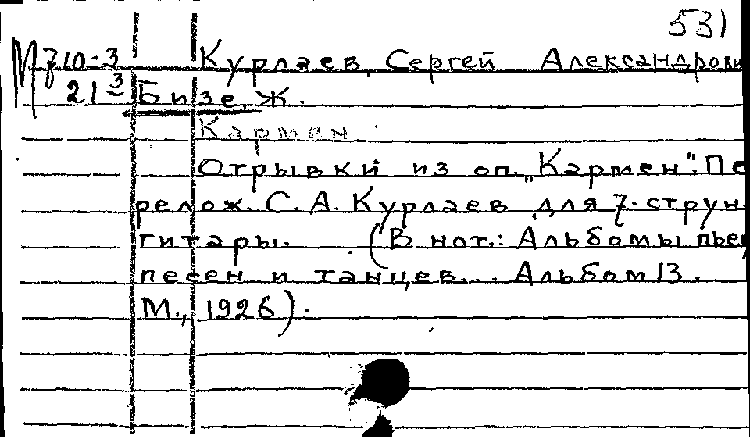 531
М 710-3 Курлаев, Сергей Александрови
21 3 Бизе, Ж.
Кармен
Отрывки из оп. „Кармен". Пе
релож. С. А. Курлаев для 7-струн.
гитары. (В нот.: Альбомы пьес,
песен и танцев... Альбом 13.
М., 1926).